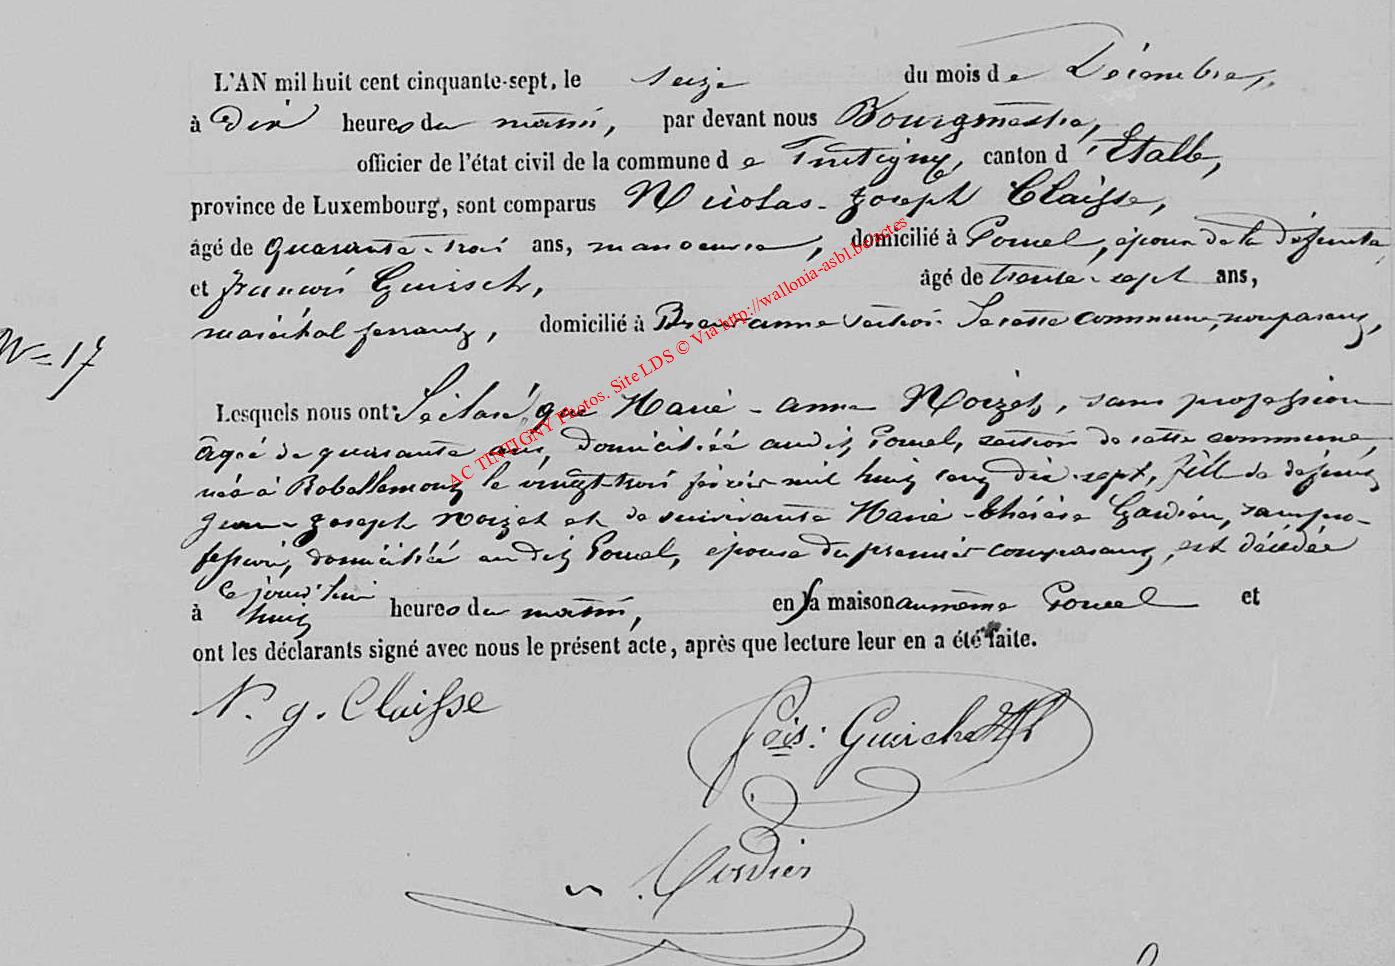 L'AN mil huit cent cinquante-sept, le seize du mois de Décembre,
à dix heures du matin, par devant nous Bourgmestre,
officier de l'état civil de la commune de Tintigny, canton d'Etalle,
province de Luxembourg, sont comparus Nicolas-Joseph Claisse,
âgé de quarante-trois ans, manoeuvre, domicilié à Poncel, époux de la défunte,
et françois Guirsch, âgé de trente-sept ans,
maréchal ferrant, domicilié à Breuvanne section de cette commune, non parent,
N= 17
Lesquels nous ont Déclaré que Marie-anne Noizet, sans profession
âgée de quarante ans, domiciliée audit Poncel, section de cette commune,
née à Robellemont le vingt-trois février mil huit cent dix-sept, fille de défunt
Jean-Joseph Noizet et de survivante Marie-Thérèse, sans pro-
fession, domiciliée audit Poncel, épouse du premier comparant, est décédée
ce jourd'hui
à huit heures du matin, en sa maison au même Poncel et
ont les déclarants signé avec nous le présent acte, après que lecture leur en a été faite.
N. J. Claisse
fçois: Guirch
Cordier
AC TINTIGNY Photos. Site LDS © Via http://wallonia-asbl.be/actes